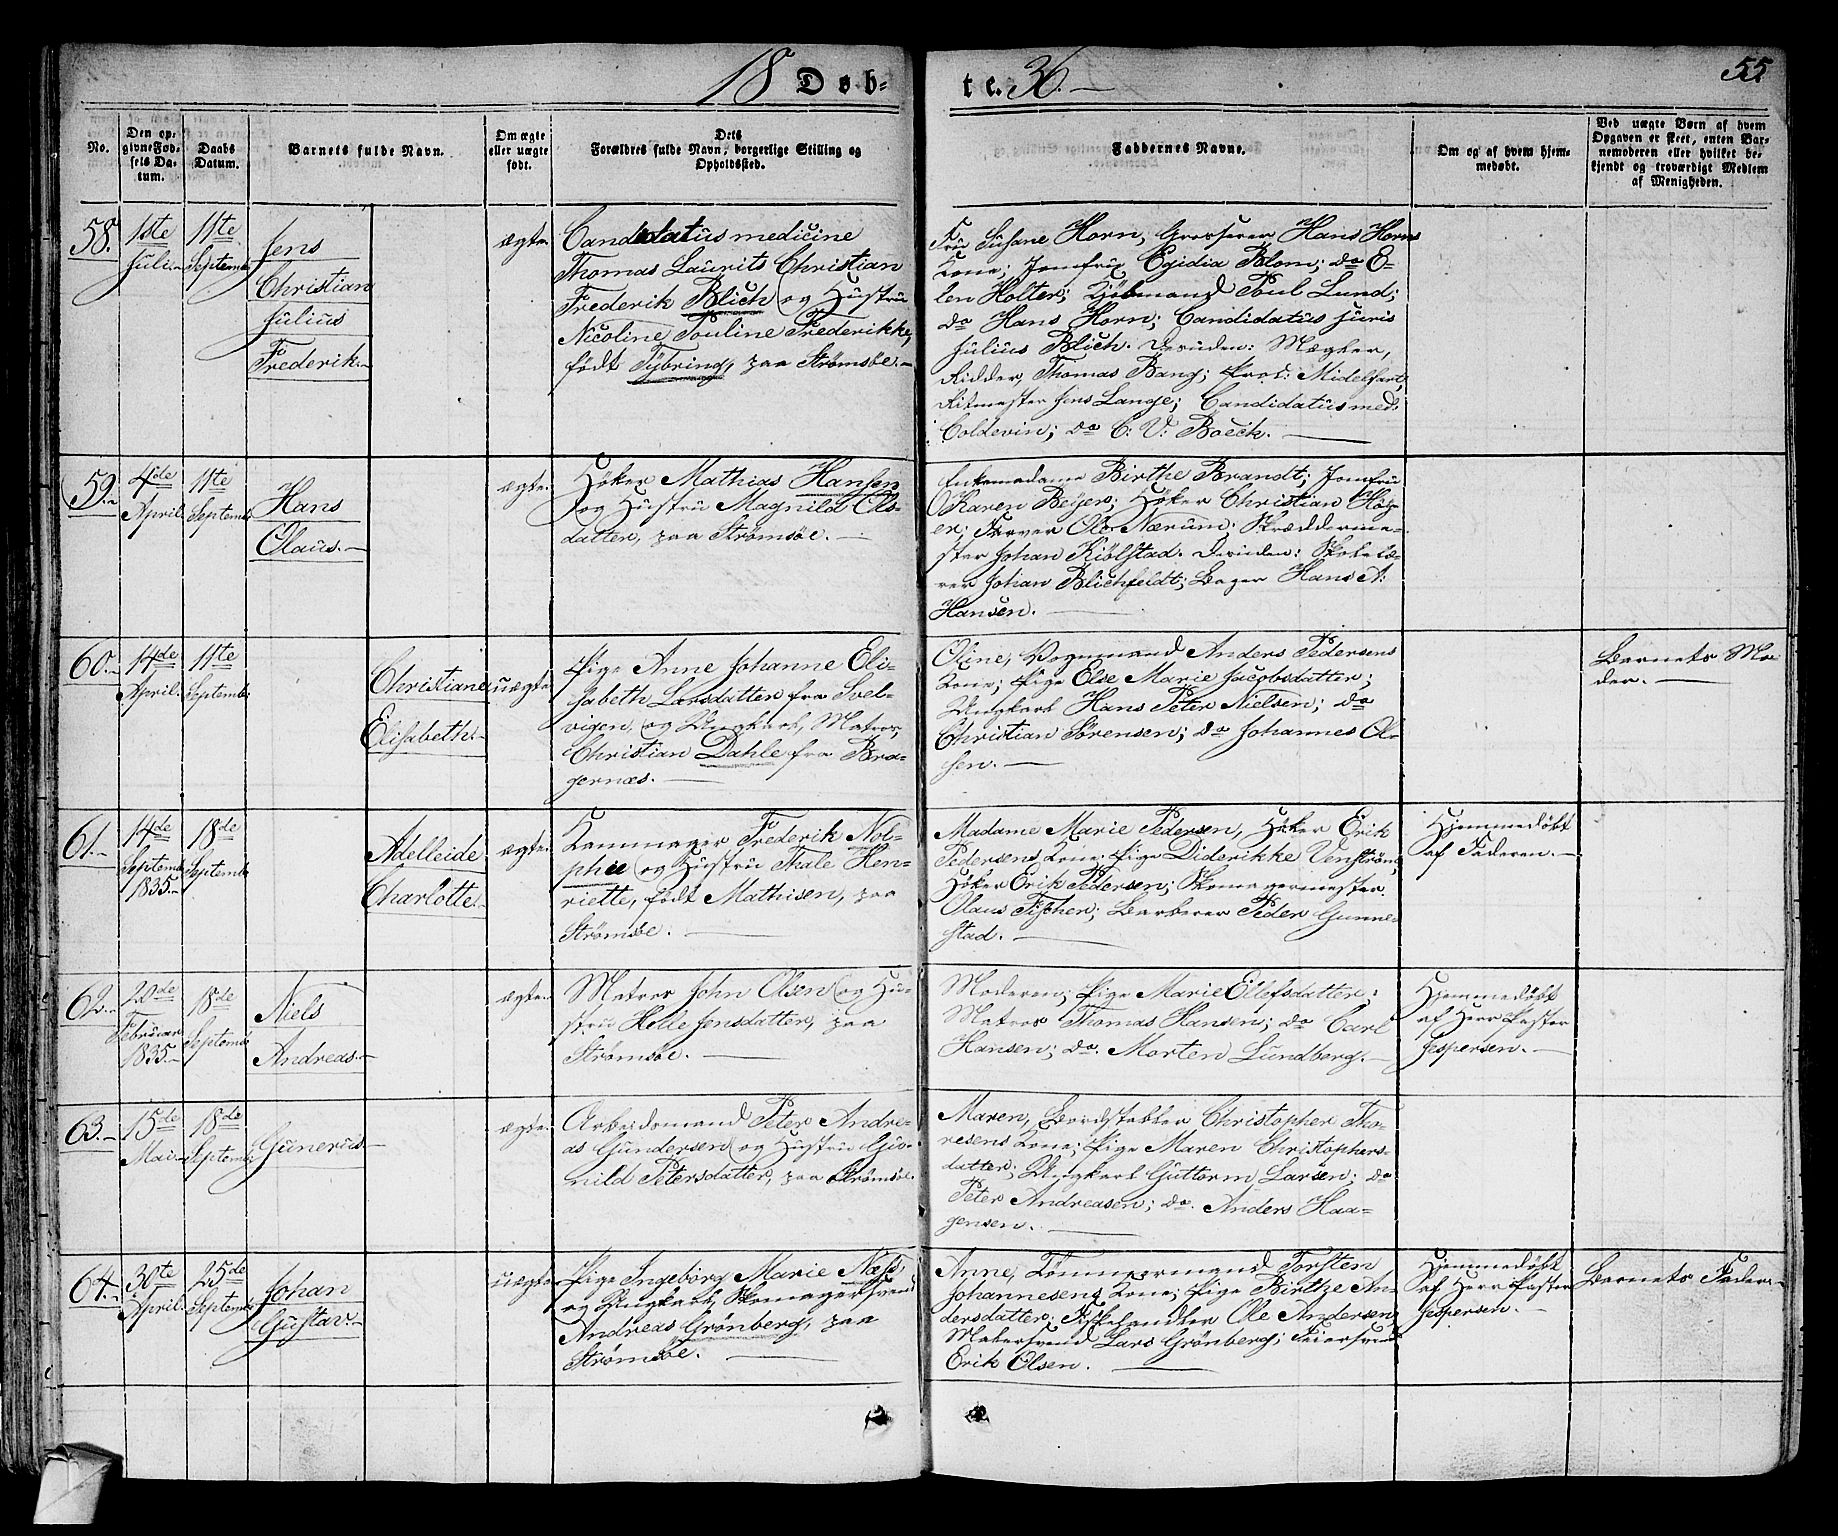 18 Døb-
te. 36.
55
No.
Den op-
givne Fød-
sels Da-
tum.
Daabs
Datum.
Barnets fulde Navn.
Om ægte
eller uægte
født.
Dets
Forældres fulde Navn, borgerlige Stilling og
Opholdssted.
Faddernes Navne.
Om og af hvem hjem-
medøbt.
Ved uægte Børn af hvem
Opgaven er skeet, enten Bar-
nemoderen eller hvilket be-
kjendt og troværdigt Medlem
af Menigheden.
58.
1ste
Juli
11te
Septemb.
Jens
Christian
Julius
Frederik.
ægte
Candidatus medicine
Thomas Laurits Christian
Frederik Blich og Hustru
Nicoline Pouline Frederikke,
født Tybring, paa Strømsøe.
Fru Susane Horn, Grosserer Hans Horns
Kone; Jomfru Egidia Blom; do E-
len Holter; Kjøbmand Poul Lund;
do Hans Horn; Candidatus juris
Julius Blich. Desuden: Mægler,
Ridder, Thomas Bang; Prov: Midelfart,
Ritmester Jens Lange; Candidatus med.
Coldevin; do C: V: Boeck.
59.
4de
April
11te
Septemb
Hans
Olaus.
ægte.
Høker Mathias Hansen
og Hustru Magnild Ols-
datter, paa Strømsøe.
Enkemadame Birthe Brandt; Jomfru
Karen Beijer; Høker Christian Høy-
er; Farver Ole Nærum; Skræderme-
ster Johan Kiølstad. Desuden: Skolelæ-
rer Johan Blichfeldt; Bager Hans A:
Hansen.
60.
14de
April
11te
Septemb
Christiane
Elisabeth.
uægte
Pige Anne Johanne Eli-
sabeth Larsdatter fra Svel-
vigen, og Ungkarl, Matros,
Christian Dahle fra Bra-
gernæs.
Oline, Vognmand Anders Pedersens
Kone; Pige Else Marie Jacobsdatter;
Ungkarl Hans Peter Nielsen; do
Christian Sørensen; do Johannes Ol-
sen.
Barnets Mo-
der.
61.
14de
Septemb
1835.
18de
Septemb
Adelleide
Charlotte.
ægte.
Kammager Frederik Nol-
phie og Hustru Thale Hen-
riette, født Mathisen, paa
Strømsøe.
Madame Marie Pedersen, Høker Erik
Pedersens Kone; Pige Diderikke Venstrøm;
Høker Erik Pedersen; Skomagermester
Olaus Fischer; Barberer Peder Gunne-
stad.
Hjemmedøbt
af Faderen.
62.
20de
Februar
1835.
18de
Septemb
Niels
Andreas.
ægte.
Matros John Olsen og Hu-
stru Helle Jensdatter, paa
Strømsøe.
Moderen; Pige Marie Ellefsdatter;
Matros Thomas Hansen; do Carl
Hansen; do. Morten Lundberg.
Hjemmedøbt
af Herr Pastor
Jespersen.
63.
15de
Mai
18de
Septemb
Gunerius
ægte.
Arbeidsmand Peter Andre-
as Gundersen og Hustru Gun-
nild Petersdatter, paa Strømsøe.
Maren, Bordstabler Christopher Tho-
resens Kone; Pige Maren Christophers-
datter; Ungkarl Guttorm Larsen; do
Peter Andreasen; do. Anders Haa-
gensen.
64.
30te
April
25de
Septemb
Johan
Gustav.
uægte
Pige Ingeborg Marie Næss,
og Ungkarl, Skomagersvend
Andreas Grønberg, paa
Strømsøe.
Anne, Tømmermand Torsten
Johannesens Kone; Pige Birthe An-
dersdatter; Fiskehandler Ole Andersen;
Malersvend Lars Grønberg; Feiersvend
Erik Olsen.
Hjemmedøbt
af Herr Pastor
Jespersen.
Barnets Fader.